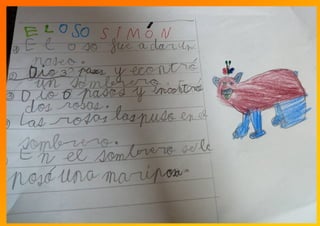 EL OSO SIMÓN
El oso fue a dar un
paseo.
Dio 3 pasos y econtró
un sombrero.
Dio 6 pasos y encontró
dos rosas.
Las rosas las puso en el
sombrero.
En el sombrero se le
posó una mariposa.